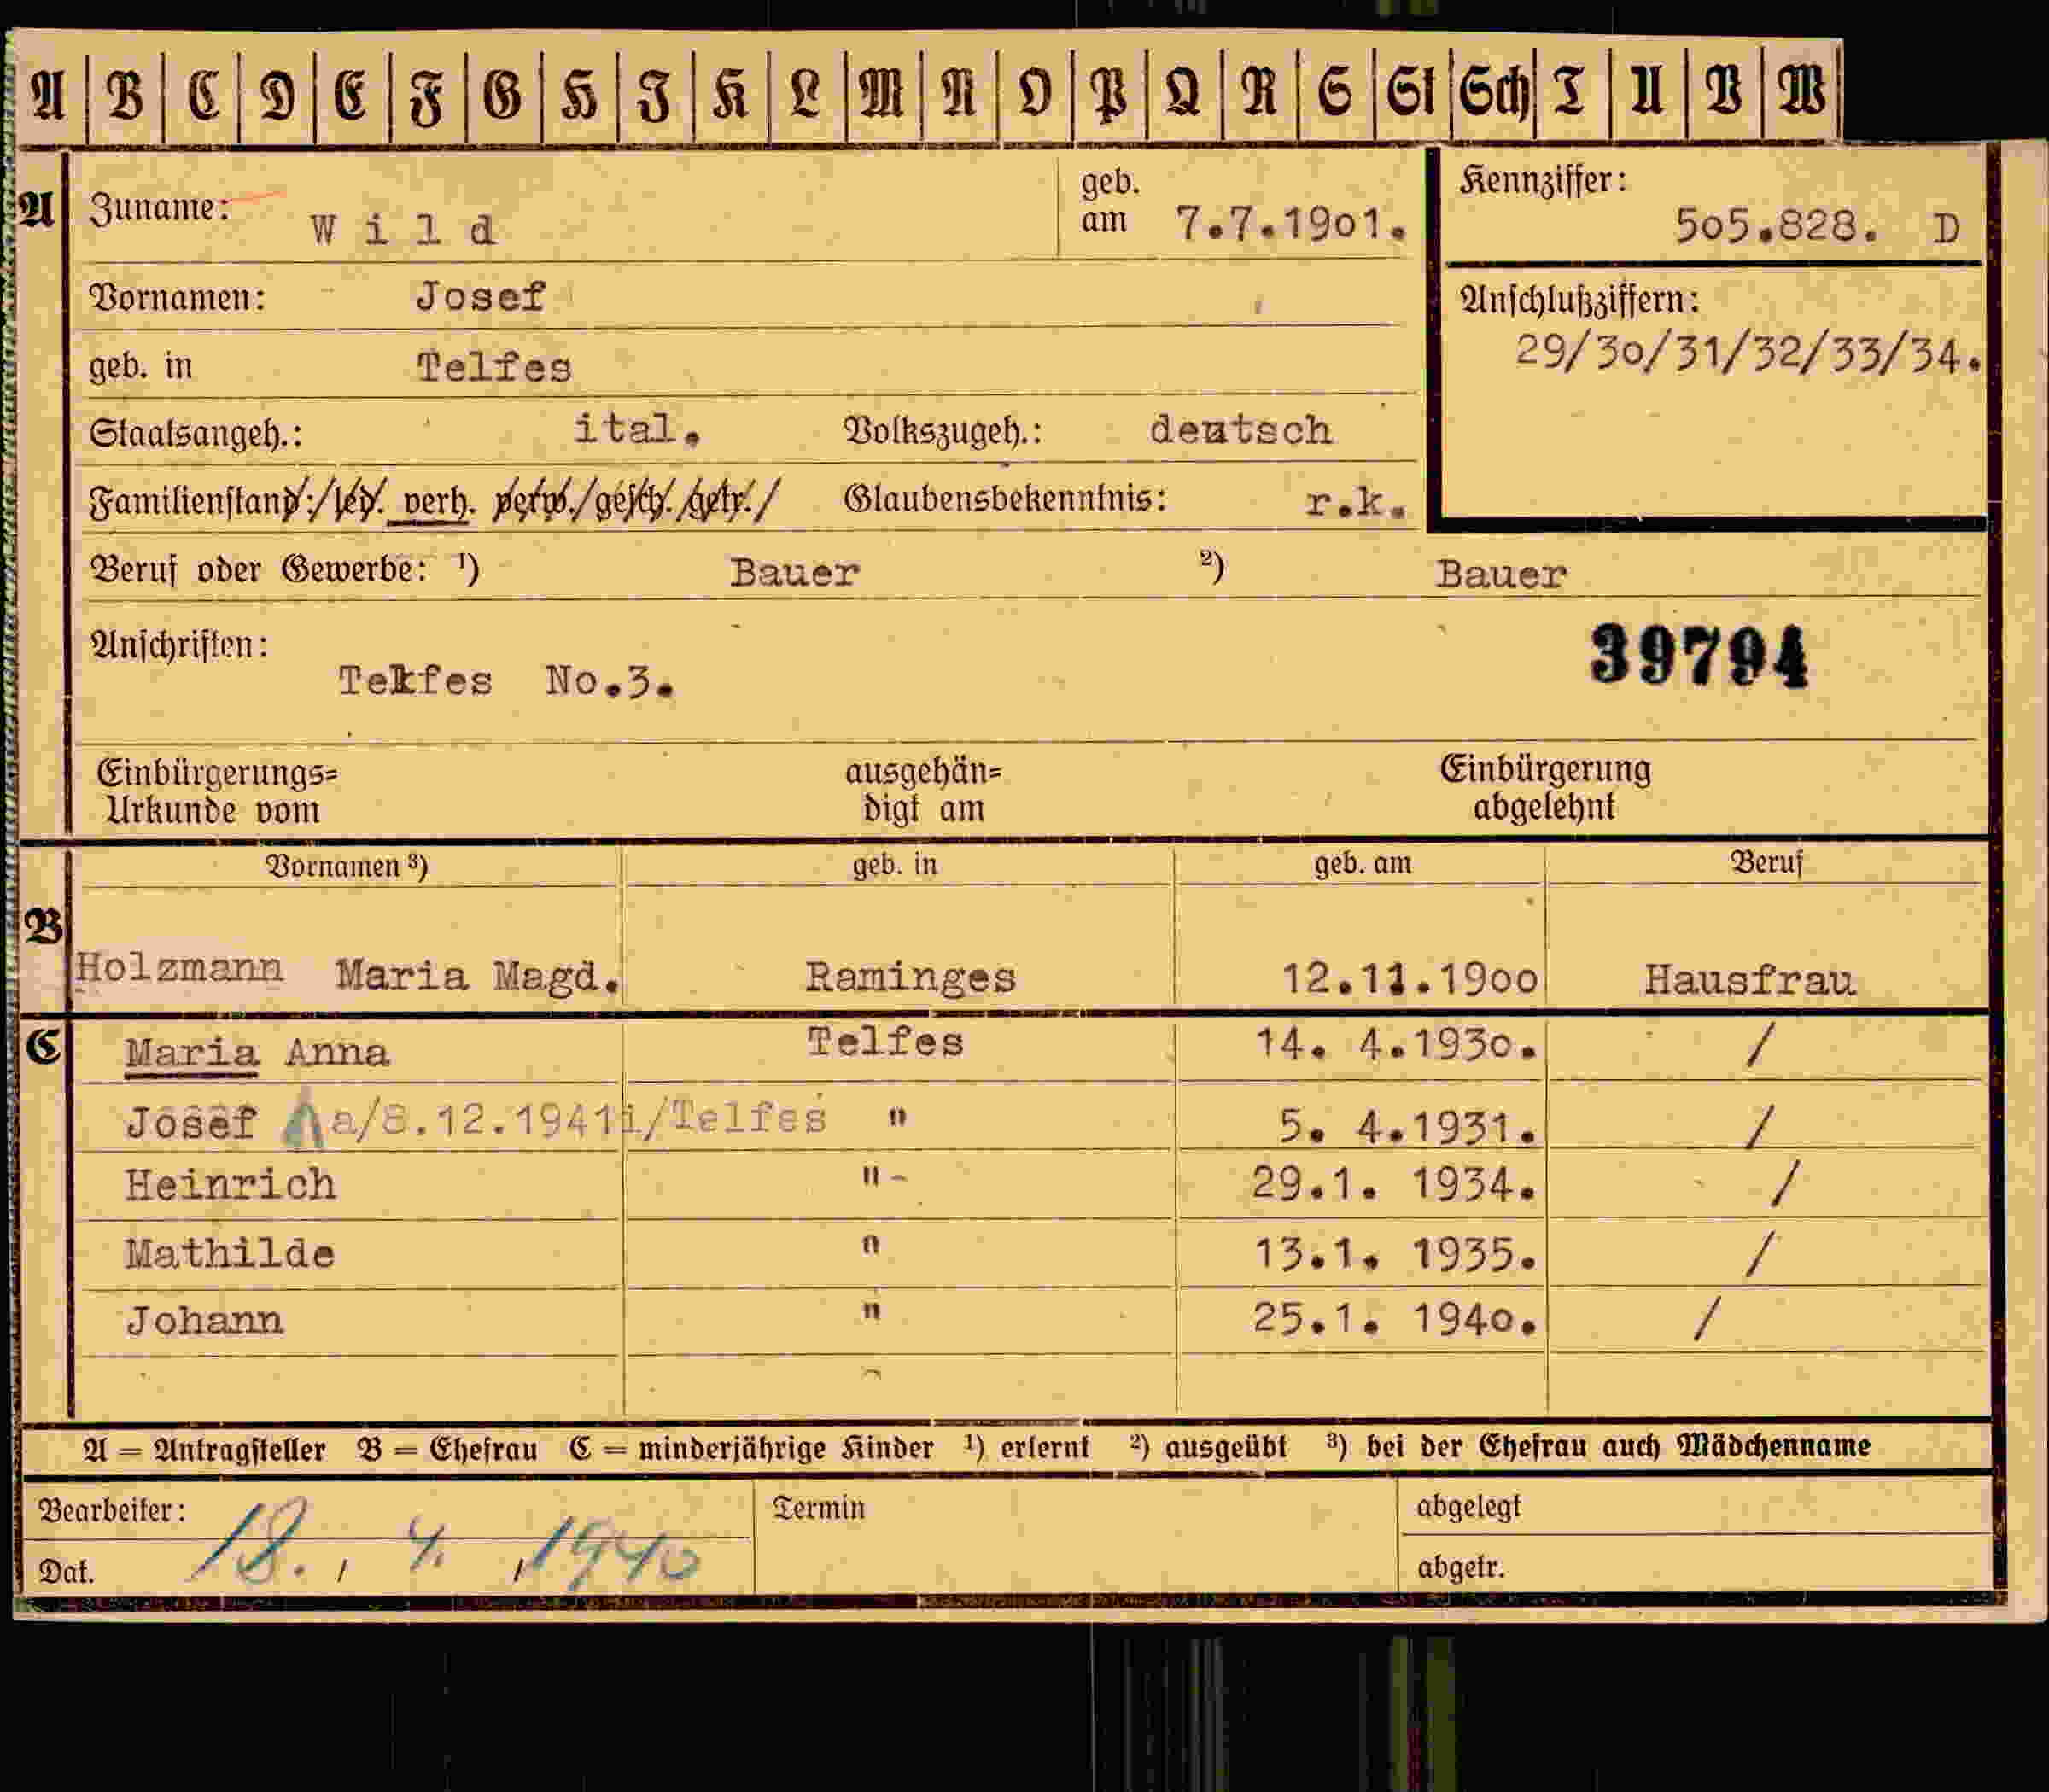 A B C D E F G H I K L M N O P Q R S St Sch T U V W
A Zuname: Wild geb. am 7.7.1901. Kennziffer: 505.828. D
Vornamen: Josef Anschlußziffern:
geb. in Telfes 29/30/31/32/33/34.
Staatsangeh.: ital. Volkszugeh.: deutsch
Familienstand: led. verh. verw. gesch. getr. Glaubensbekenntnis: r.k.
Beruf oder Gewerbe: ¹) Bauer ²) Bauer
Anschriften: 39794
Telfes No.3.
Einbürgerungs= ausgehän= Einbürgerung
Urkunde vom digt am abgelehnt
Vornamen ³) geb. in geb. am Beruf
B
Holzmann Maria Magd. Raminges 12.11.1900 Hausfrau
C Maria Anna Telfes 14. 4.1930. /
Josef a/8.12.1941i/Telfes " 5. 4.1931. /
Heinrich " 29.1. 1934. /
Mathilde " 13.1. 1935. /
Johann " 25.1. 1940. /
A = Antragsteller B = Ehefrau C = minderjährige Kinder ¹) erlernt ²) ausgeübt ³) bei der Ehefrau auch Mädchenname
Bearbeiter: Termin abgelegt
Dat. 18. 4. 1940 abgetr.